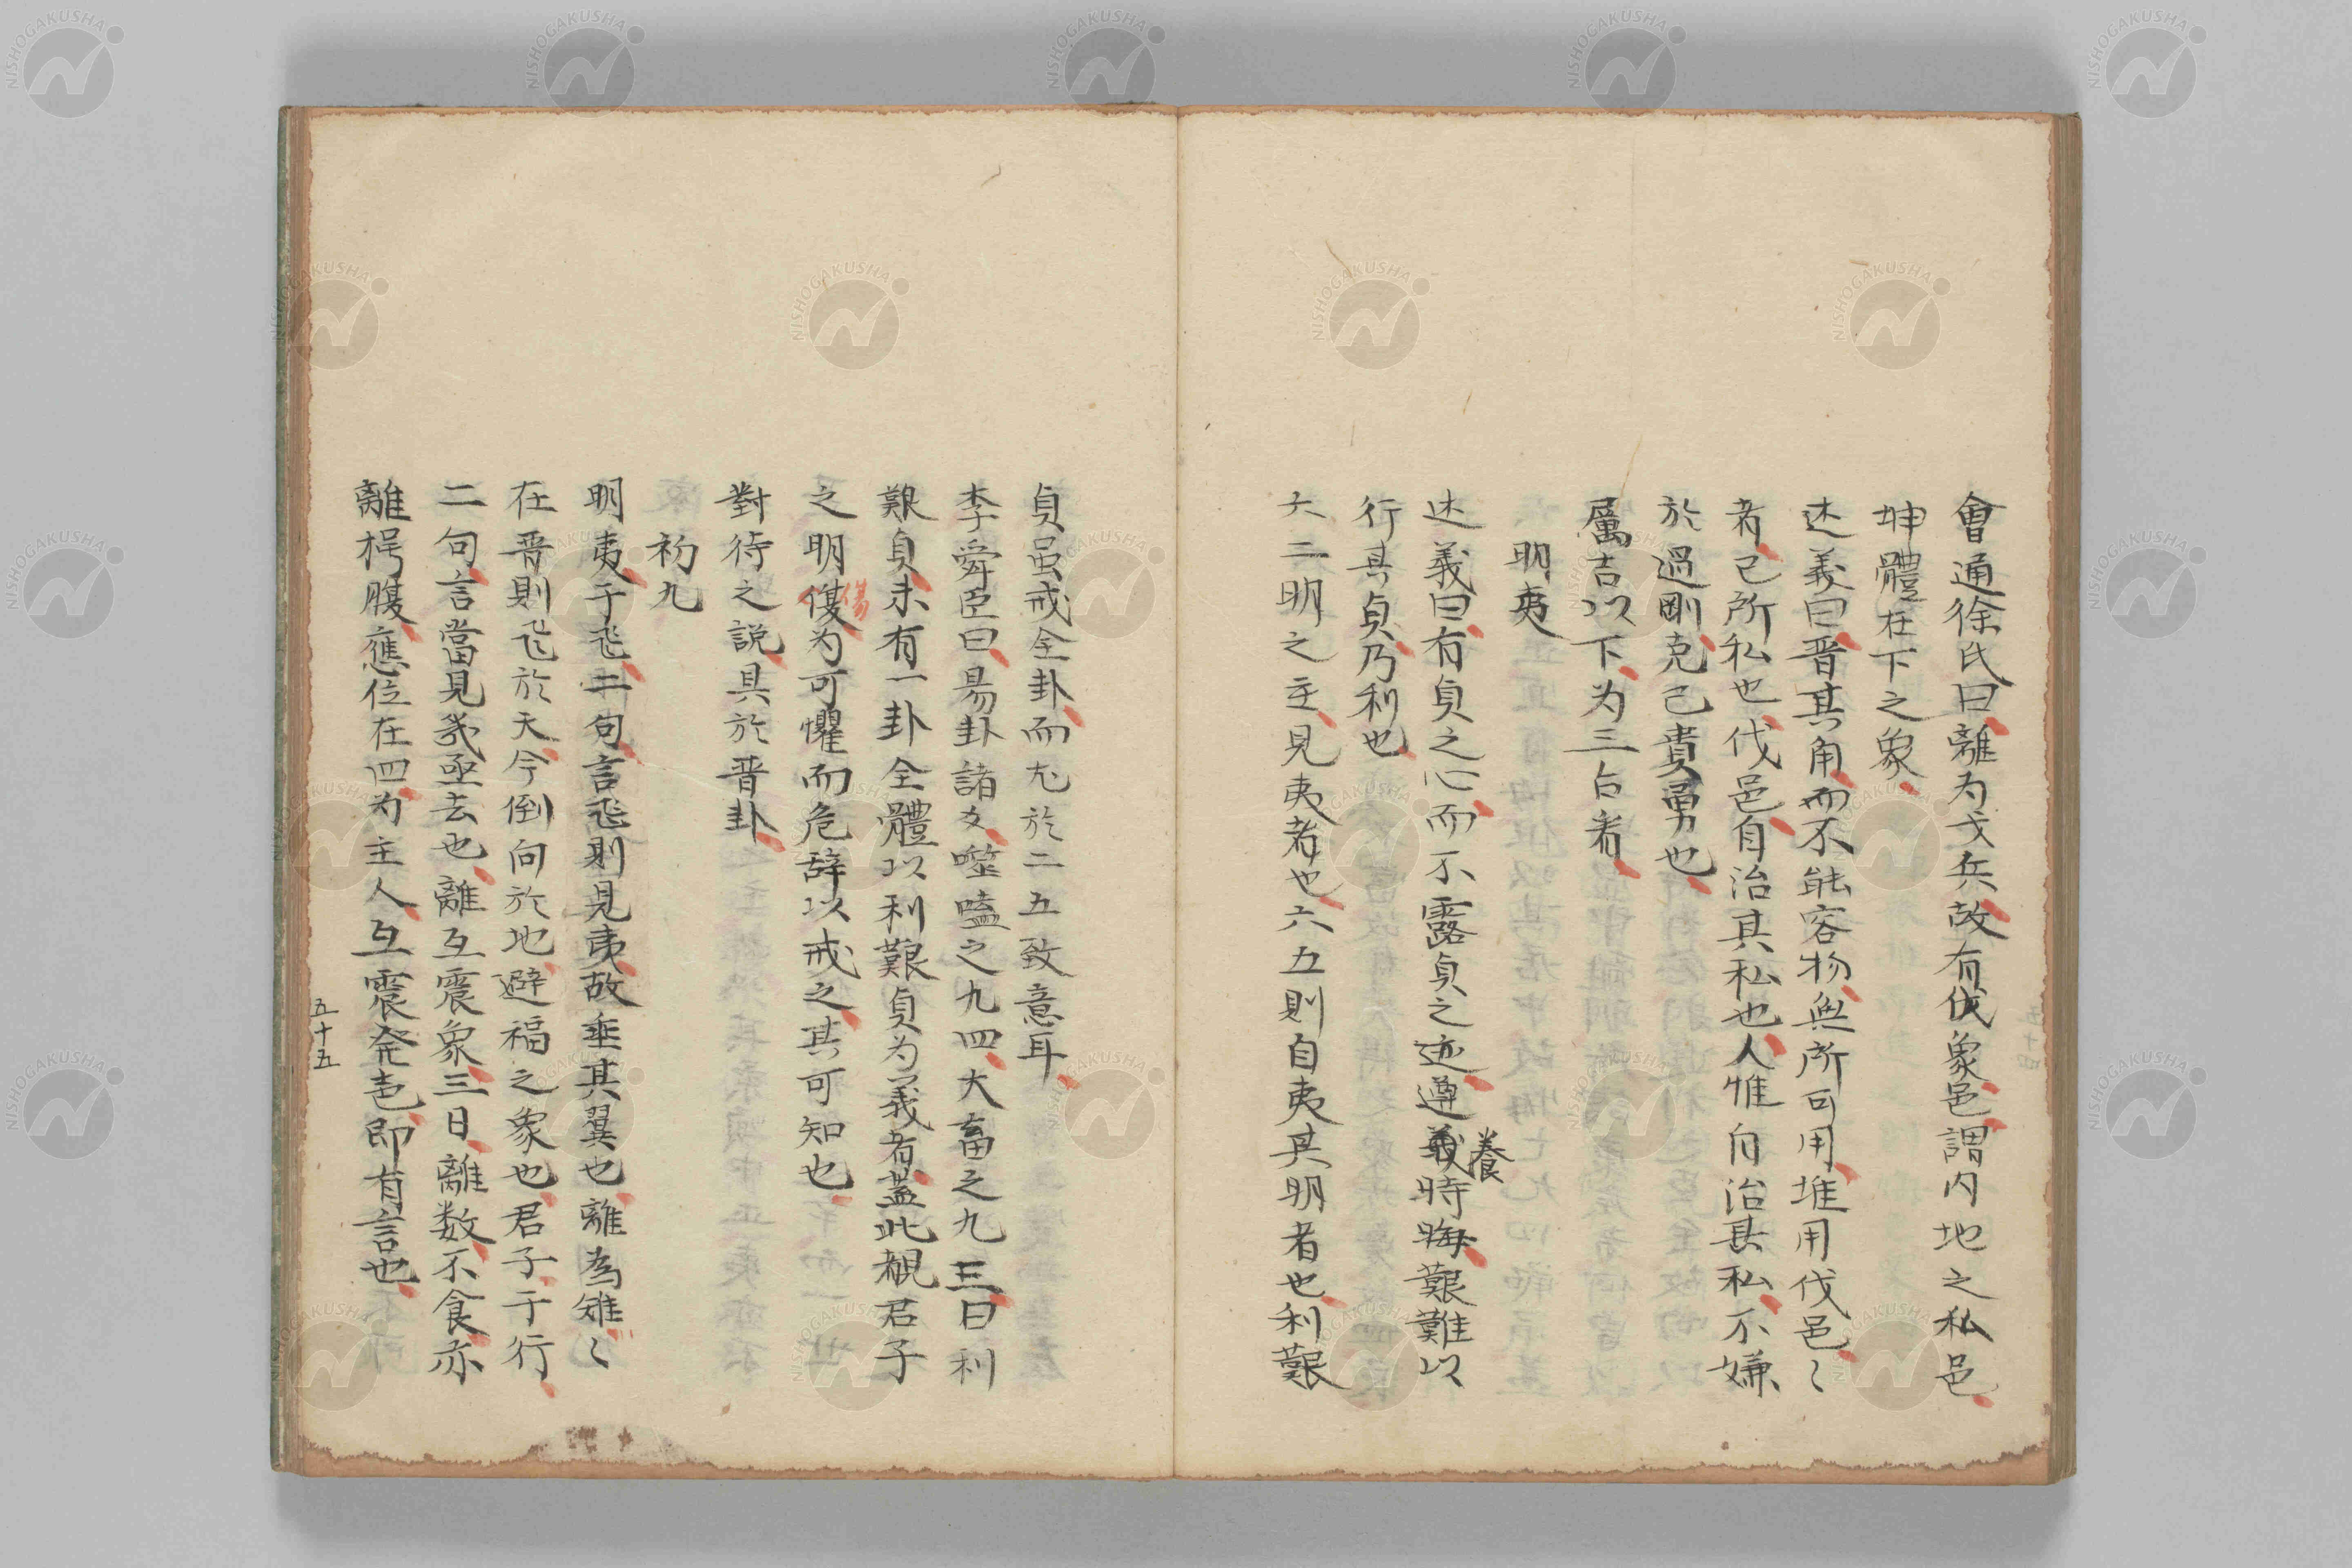 會通徐氏曰離为戈兵故有伐象邑謂内地之私邑
坤體在下之象
述義曰晋其角而不能容物無所可用堆用伐邑〻
者己所私也伐邑自治其私也人惟自治其私不嫌
於過剛克己貴勇也
厲吉以下为三占者
明夷
述義曰有貞之心而不露貞之迹遵義時晦艱難以
養
行其貞乃利也
六二明之主見夷者也六五則自夷其明者也利艱
貞虽戒全卦而尤於二五致意耳
李舜臣曰易卦諸爻噬嗑之九四大畜之九三曰利
艱貞未有一卦全體以利艱貞为義者蓋此覩君子
之明傷为可懼而危辞以戒之其可知也
傷
對待之説具於晋卦
初九
明夷于飛二句言飛則見夷故垂其翼也離為雉〻
在晋則飛於天今倒向於地避福之象也君子于行
二句言當見幾亟去也離互震象三日離数不食亦
離枵腹應位在四为主人互震発声即有言也
五十五